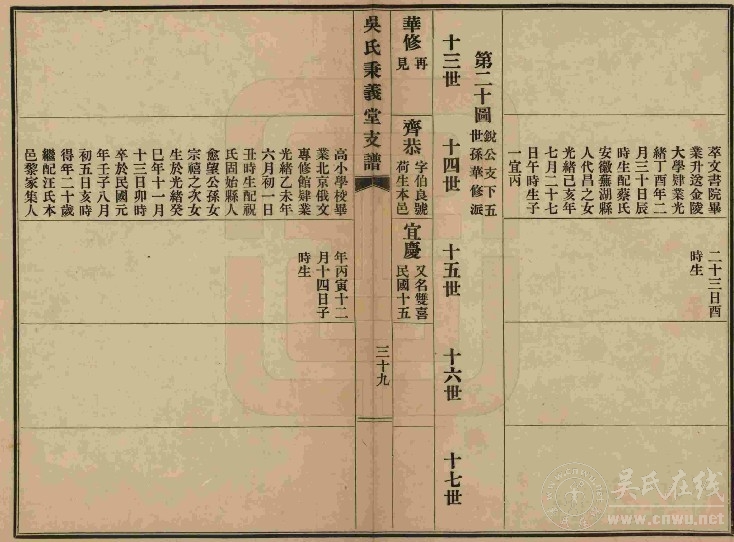 萃文書院畢
業升送金陵
大學肄業光
緒丁酉年二
月三十日辰
時生配蔡氏
安徽蕪湖縣
人代昌之女
光緒己亥年
七月二十七
日午時生子
一宜丙
二十三日酉
時生
第二十圖
銳公支下五
世孫華修派
十三世
十四世
十五世
十六世
十七世
華修
再
見
齊恭
字伯良號
荷生本邑
宜慶
又名雙喜
民國十五
吳氏秉義堂支譜
三十九
高小學校畢
業北京俄文
專修館肄業
光緒乙未年
六月初一日
丑時生配祝
氏固始縣人
愈望公孫女
宗禧之次女
生於光緒癸
巳年十一月
十三日卯時
卒於民國元
年壬子八月
初五日亥時
得年二十歲
繼配汪氏本
邑黎家集人
年丙寅十二
月十四日子
時生
吴氏在线
www.cnwu.net